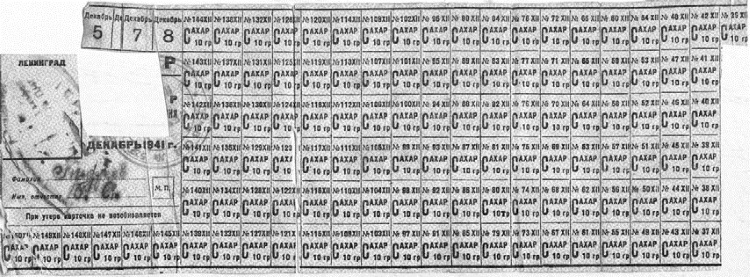 Декабрь Де Декабрь Декабрь № 144 XII № 138 XII № 132 XII № 126 № 120 XII № 114 XII № 108 XII № 102 XII № 96 XII № 90 XII № 84 XII № 78 XII № 72 XII № 66 XII № 60 XII № 54 XII № 48 XII № 42 XII № 36 XII
5 7 8 САХАР САХАР САХАР САХАР САХАР САХАР САХАР САХАР САХАР САХАР САХАР САХАР САХАР САХАР САХАР САХАР САХАР САХАР САХАР
10 гр 10 гр 10 гр 10 гр 10 гр 10 гр 10 гр 10 гр 10 гр 10 гр 10 гр 10 гр 10 гр 10 гр 10 гр 10 гр 10 гр 10 гр 10 гр
ЛЕНИНГРАД Р № 143 XII № 137 XII № 131 XII № 125 № 119 XII № 113 XII № 107 XII № 101 XII № 95 XII № 89 XII № 83 XII № 77 XII № 71 XII № 65 XII № 59 XII № 53 XII № 47 XII № 41 XII
САХАР САХАР САХАР САХАР САХАР САХАР САХАР САХАР САХАР САХАР САХАР САХАР САХАР САХАР САХАР САХАР САХАР САХАР
10 гр 10 гр 10 гр 10 гр 10 гр 10 гр 10 гр 10 гр 10 гр 10 гр 10 гр 10 гр 10 гр 10 гр 10 гр 10 гр 10 гр 10 гр
№ 142 XII № 136 XII № 130 XII № 124 № 118 XII № 112 XII № 106 XII № 100 XII № 94 XII № 88 XII № 82 XII № 76 XII № 70 XII № 64 XII № 58 XII № 52 XII № 46 XII № 40 XII
САХАР САХАР САХАР САХАР САХАР САХАР САХАР САХАР САХАР САХАР САХАР САХАР САХАР САХАР САХАР САХАР САХАР САХАР
10 гр 10 гр 10 гр 10 гр 10 гр 10 гр 10 гр 10 гр 10 гр 10 гр 10 гр 10 гр 10 гр 10 гр 10 гр 10 гр 10 гр 10 гр
ДЕКАБРЬ 1941 г. № 141 XII № 135 XII № 129 XII № 123 № 117 XII № 111 XII № 105 XII № 99 XII № 93 XII № 87 XII № 81 XII № 75 XII № 69 XII № 63 XII № 57 XII № 51 XII № 45 XII № 39 XII
САХАР САХАР САХАР САХАР САХАР САХАР САХАР САХАР САХАР САХАР САХАР САХАР САХАР САХАР САХАР САХАР САХАР САХАР
10 гр 10 гр 10 гр 10 гр 10 гр 10 гр 10 гр 10 гр 10 гр 10 гр 10 гр 10 гр 10 гр 10 гр 10 гр 10 гр 10 гр 10 гр
Фамилия
М.П. № 140 XII № 134 XII № 128 XII № 122 № 116 XII № 110 XII № 104 XII № 98 XII № 92 XII № 86 XII № 80 XII № 74 XII № 68 XII № 62 XII № 56 XII № 50 XII № 44 XII № 38 XII
Имя, отчество САХАР САХАР САХАР САХАР САХАР САХАР САХАР САХАР САХАР САХАР САХАР САХАР САХАР САХАР САХАР САХАР САХАР САХАР
При утере карточка не возобновляется 10 гр 10 гр 10 гр 10 гр 10 гр 10 гр 10 гр 10 гр 10 гр 10 гр 10 гр 10 гр 10 гр 10 гр 10 гр 10 гр 10 гр 10 гр
№ 149 XII № 148 XII № 147 XII № 146 XII № 145 XII № 139 XII № 133 XII № 127 XII № 121 XII № 115 XII № 109 XII № 103 XII № 97 XII № 91 XII № 85 XII № 79 XII № 73 XII № 67 XII № 61 XII № 55 XII № 49 XII № 43 XII № 37 XII
САХАР САХАР САХАР САХАР САХАР САХАР САХАР САХАР САХАР САХАР САХАР САХАР САХАР САХАР САХАР САХАР САХАР САХАР САХАР САХАР САХАР САХАР САХАР САХАР
10 гр 10 гр 10 гр 10 гр 10 гр 10 гр 10 гр 10 гр 10 гр 10 гр 10 гр 10 гр 10 гр 10 гр 10 гр 10 гр 10 гр 10 гр 10 гр 10 гр 10 гр 10 гр 10 гр 10 гр